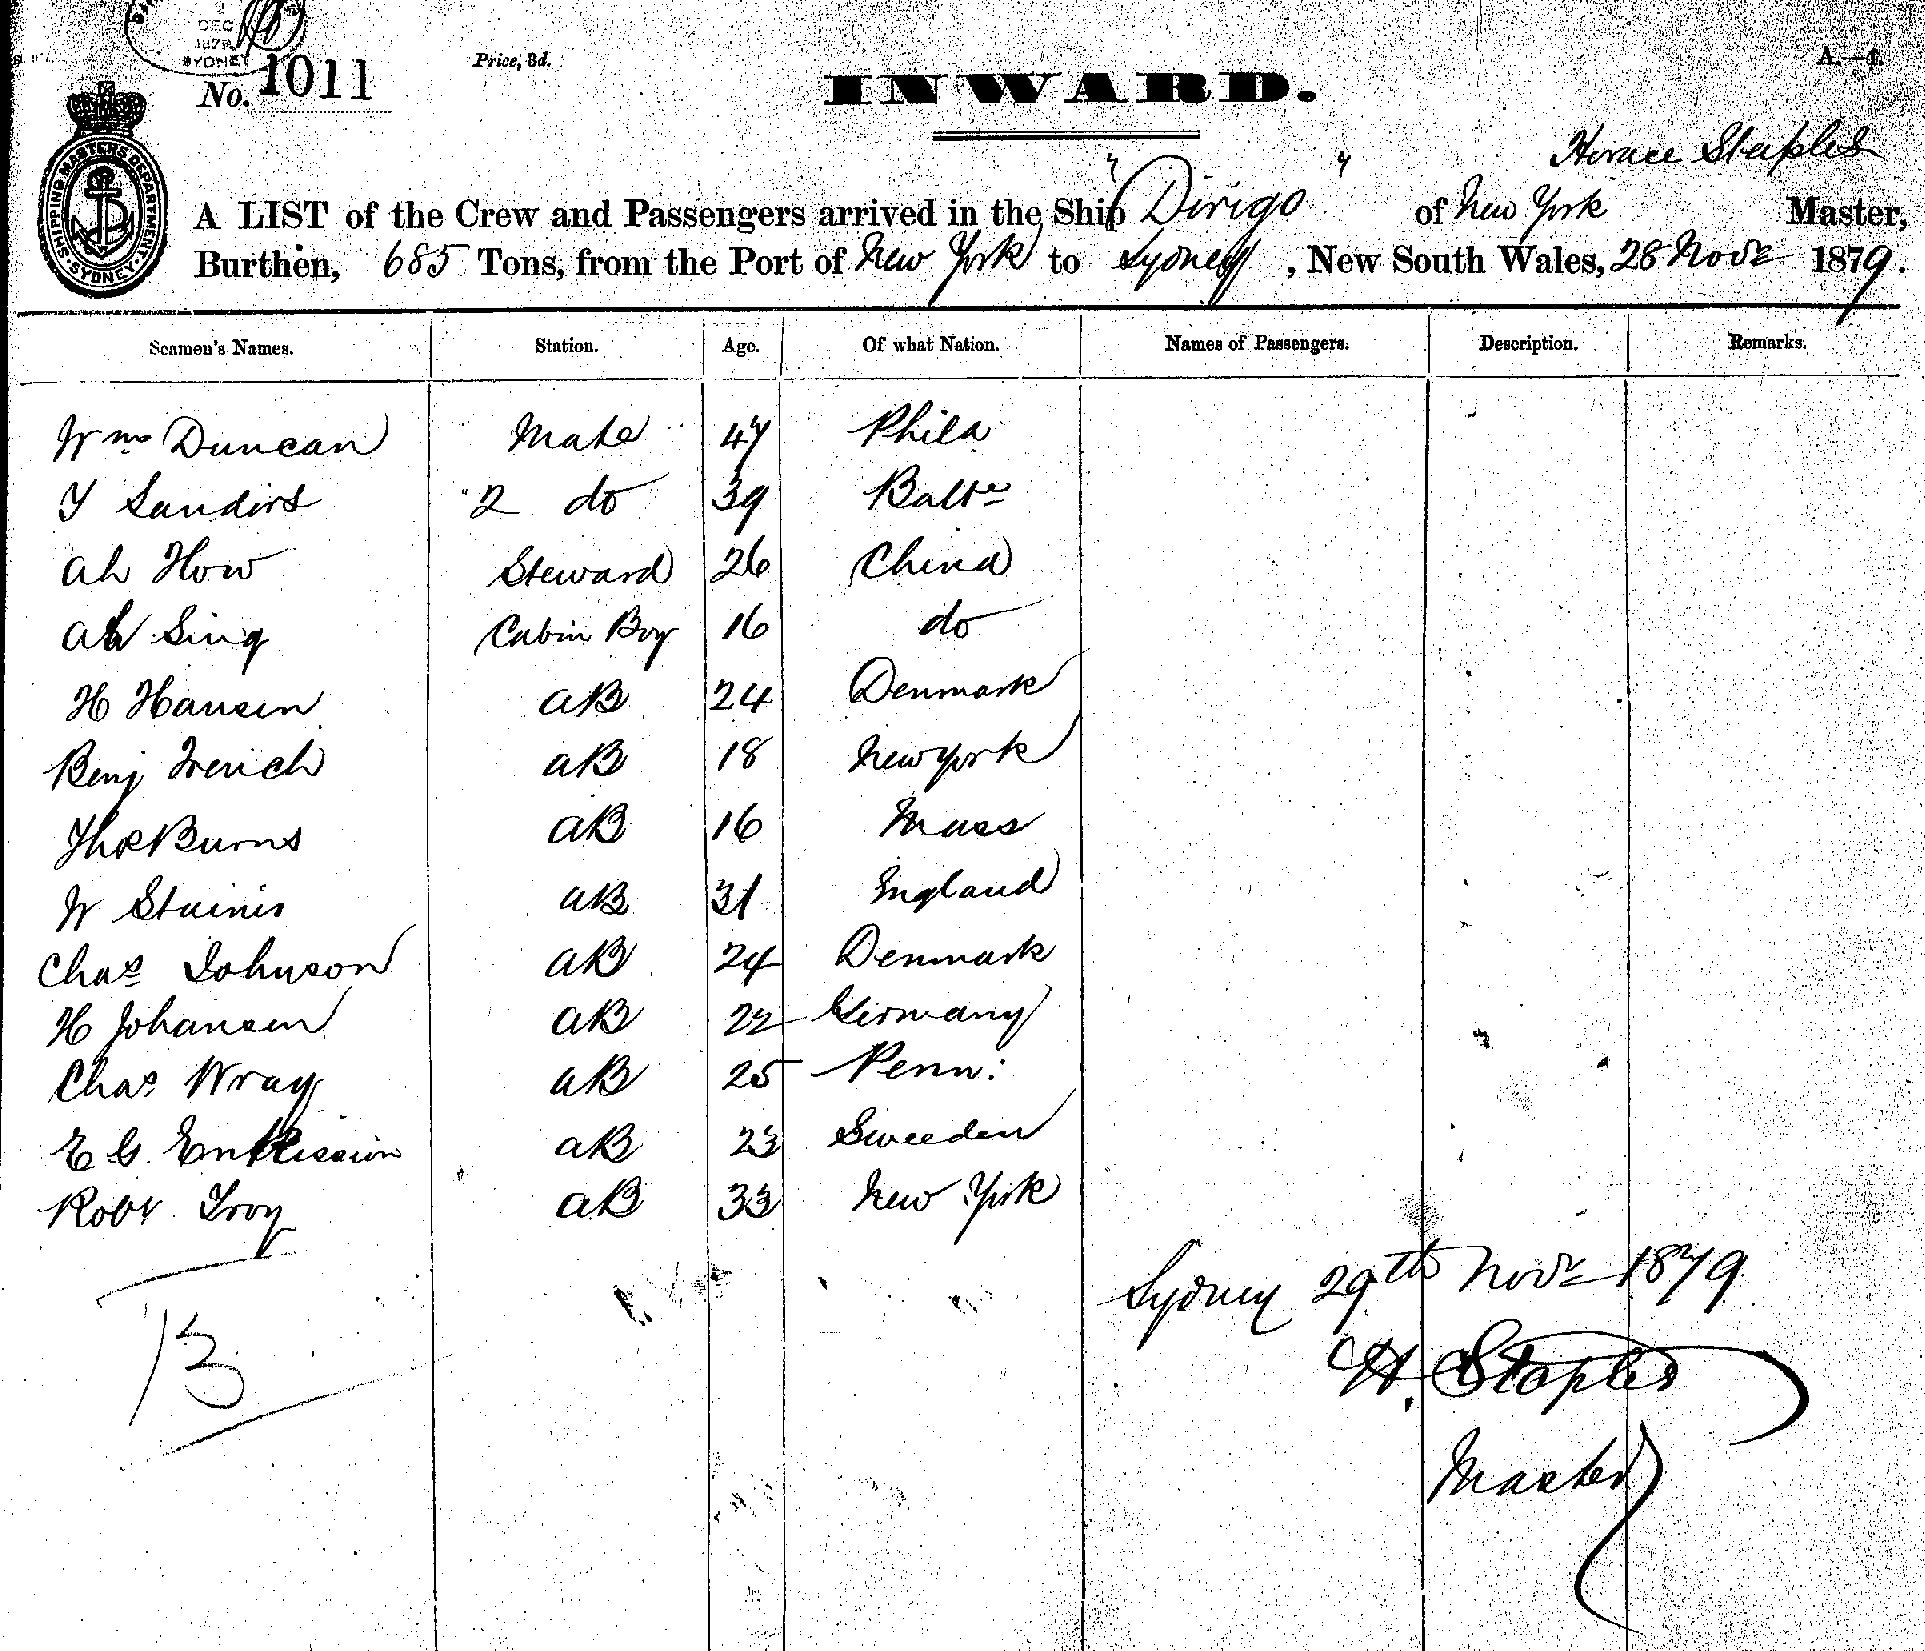 DEC
1879
SYDNEY
No. 1011
Price, 3d.
A.—1.
INWARD.
SHIPPING MASTERS DEPARTMENT
SYDNEY
Horace Staples
A LIST of the Crew and Passengers arrived in the Ship "Dirigo" of New York Master,
Burthen, 685 Tons, from the Port of New York to Sydney, New South Wales, 28 Novr 1879.
Seamen's Names. Station. Age. Of what Nation. Names of Passengers. Description. Remarks.
Wm Duncan Mate 47 Phila
Y Sandirs 2 do 39 Balte
Ah How Steward 26 China
Ah Sing Cabin Boy 16 do
H Hansen AB 24 Denmark
Benj French AB 18 New York
Thos Burns AB 16 Mass
W Stainis AB 31 England
Chas Johnson AB 24 Denmark
H Johansen AB 22 Germany
Chas Wray AB 25 Penn:
E G. AB 23 Sweeden
Robt Troy AB 33 New York
13
Sydney 29th Novr 1879
H. Staples
Master